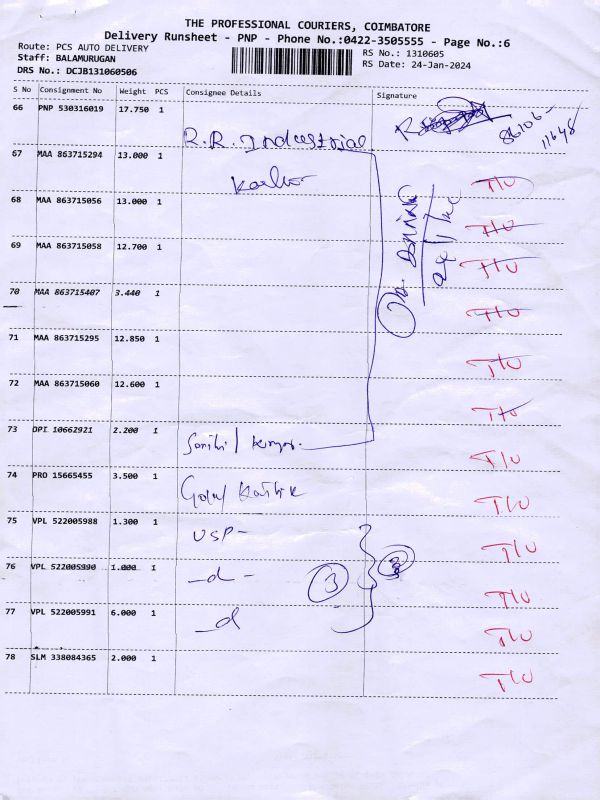 THE PROFESSIONAL COURIERS, COIMBATORE
Delivery Runsheet - PNP - Phone No.:0422-3505555 - Page No.:6
Route: PCS AUTO DELIVERY
RS No.: 1310605
Staff: BALAMURUGAN
RS Date: 24-Jan-2024
DRS No.: DCJB131060506
S No Consignment No Weight PCS Consignee Details Signature
66 PNP 530316019 17.750 1
86106-
11648
R.R. Industrial
67 MAA 863715294 13.000 1
T/U
68 MAA 863715056 13.000 1
T/U
69 MAA 863715058 12.700 1
T/U
70 MAA 863715407 3.440 1
T/U
71 MAA 863715295 12.850 1
T/U
72 MAA 863715060 12.600 1
T/U
73 DPI 10662921 2.200 1
T/U
74 PRO 15665455 3.500 1
T/U
75 VPL 522005988 1.300 1
USP-
T/U
76 VPL 522005990 1.000 1
-d- 3
T/U
77 VPL 522005991 6.000 1
-d
T/U
78 SLM 338084365 2.000 1
T/U